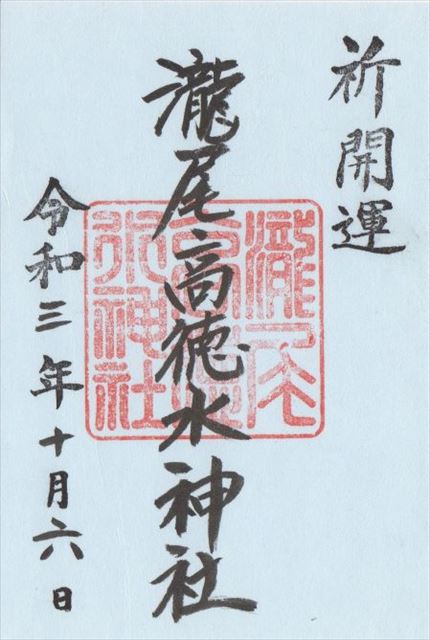 祈開運
瀧尾高徳水神社
瀧尾高徳水神社
令和三年十月六日